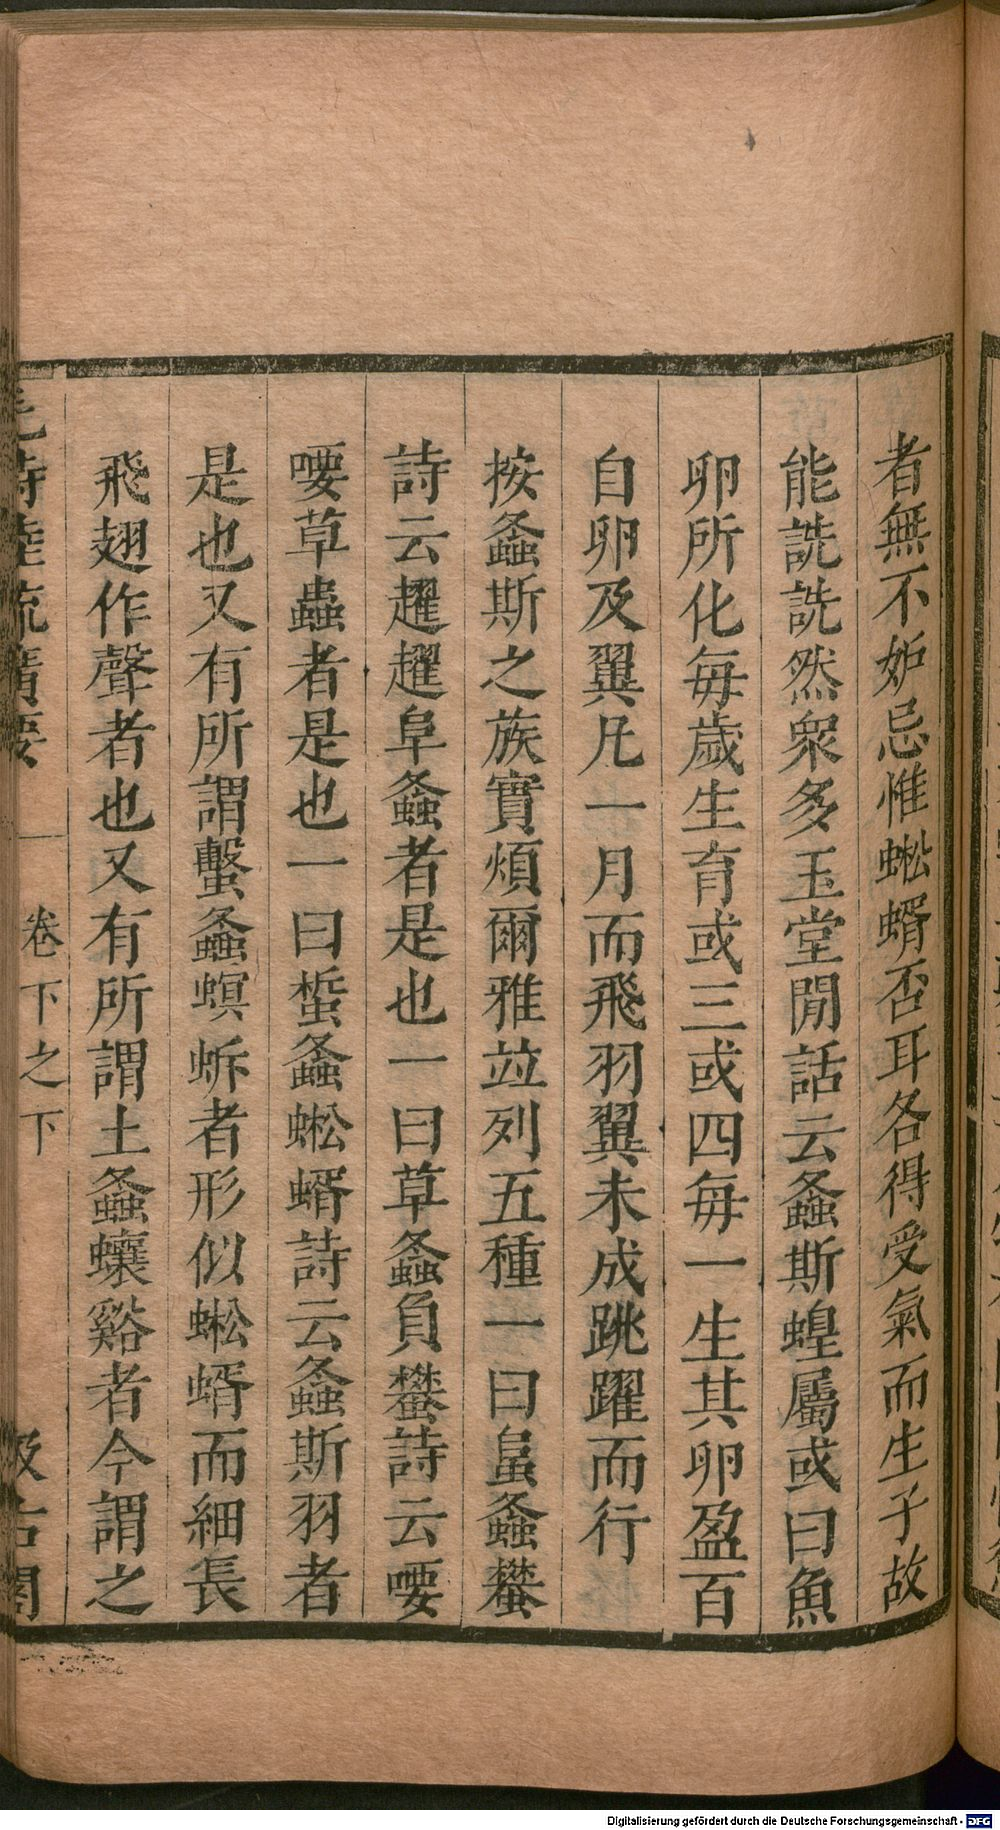 者無不妒忌惟蜙蝑否耳各得受氣而生子故
能詵詵然衆多玉堂閒話云螽斯蝗屬或曰魚
卵所化每歲生育或三或四每一生其卵盈百
自卵及翼凡一月而飛羽翼未成跳躍而行
按螽斯之族實煩爾雅竝列五種一曰𧊙螽蠜
詩云趯趯阜螽者是也一曰草螽負蠜詩云喓
喓草蟲者是也一曰蜤螽蜙蝑詩云螽斯羽者
是也又有所謂蟿螽螇蚸者形似蜙蝑而細長
飛翅作聲者也又有所謂土螽蠰谿者今謂之
毛詩陸疏廣要
卷下之下
汲古閣
Digitalisierung gefördert durch die Deutsche Forschungsgemeinschaft - DFG